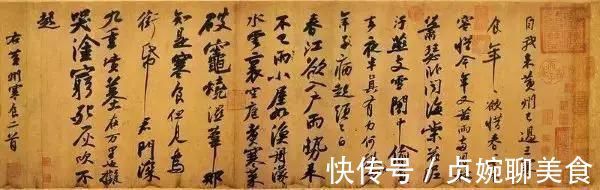 自我来黄州已過三寒
食年〃欲惜春〃去不
容惜今年又苦雨两月秋
蕭瑟卧聞海棠花泥
汙燕支雪闇中偷負
去夜半真有力何殊
年子病起頭已白
春江欲入户雨勢来
不已雨小屋如漁舟濛〃
水雲裏空庖煮寒菜
破竈燒濕葦那
知是寒食但見烏
銜帋君門深
九重墳墓在万里也擬
哭塗窮死灰吹不
起
右黄州寒食二首
快传号 / 贞婉聊美食